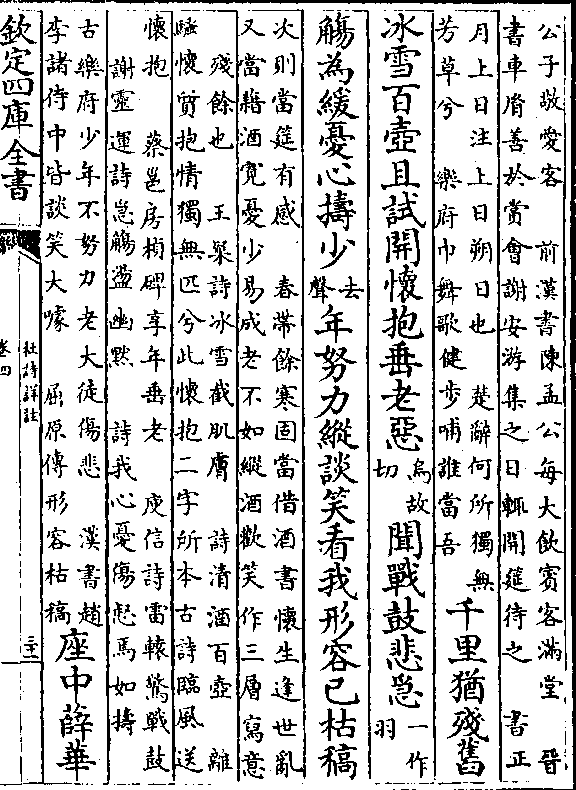 公子敬愛客　前漢書陳孟公每大飲賓客滿堂　晉
書車胤善於賞會謝安游集之日輒開筵待之　書正
月上日注上日朔日也　楚辭何所獨無
芳草兮　樂府巾舞歌健步哺誰當吾
千里猶殘舊
冰雪百壺且試開懷抱垂老惡烏故切聞戰鼓悲急一作羽
觴為緩憂心擣少去聲年努力縱談笑看我形容已枯稿
次則當筵有感　春帶餘寒固當借酒書懷生逢世亂
又當藉酒寬憂少易成老不如縱酒歡笑作三層寫意
殘餘也　王粲詩冰雪截肌膚　詩清酒百壺　離
騷懷質抱情獨無匹兮此懷抱二字所本古詩臨風送
懷抱　蔡邕房楨碑享年垂老　庾信詩雷轅驚戰鼓
謝靈運詩急觴盪幽默　詩我心憂傷惄焉如擣
古樂府少年不努力老大徒傷悲　漢書趙
李諸侍中皆談笑大噱　屈原傳形容枯稿
座中薛華
欽定四庫全書
杜詩詳註
卷四